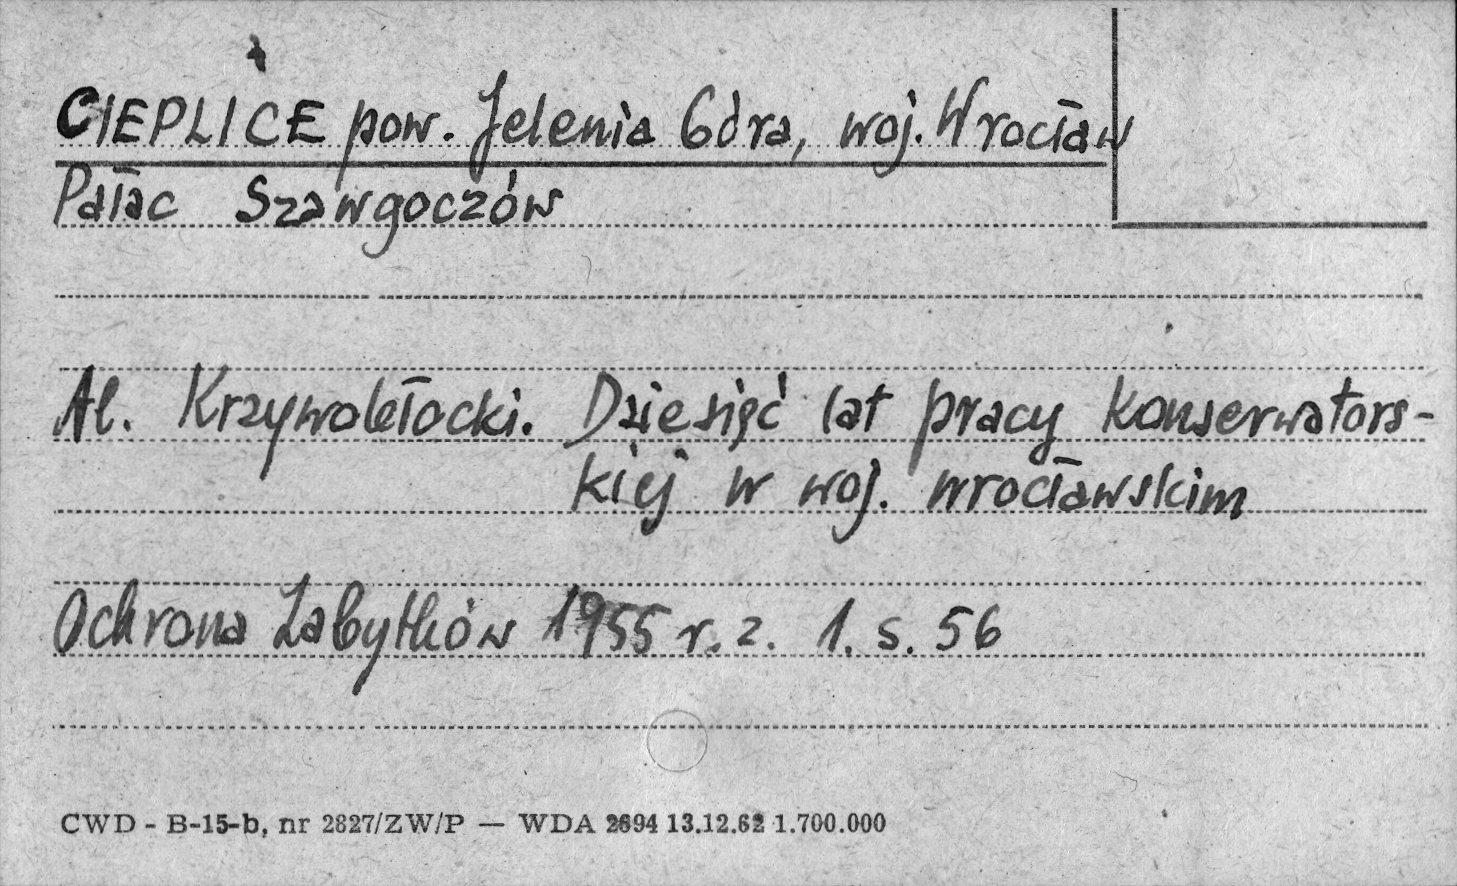 CIEPLICE pow. Jelenia Góra, woj. Wrocław
Pałac Szawgoczów
Al. Krzywobłocki. Dziesięć lat pracy konserwators-
kiej w woj. wrocławskim
Ochrona Zabytków 1955 r. z. 1. s. 56
CWD - B-15-b, nr 2827/ZW/P — WDA 2694 13.12.62 1.700.000